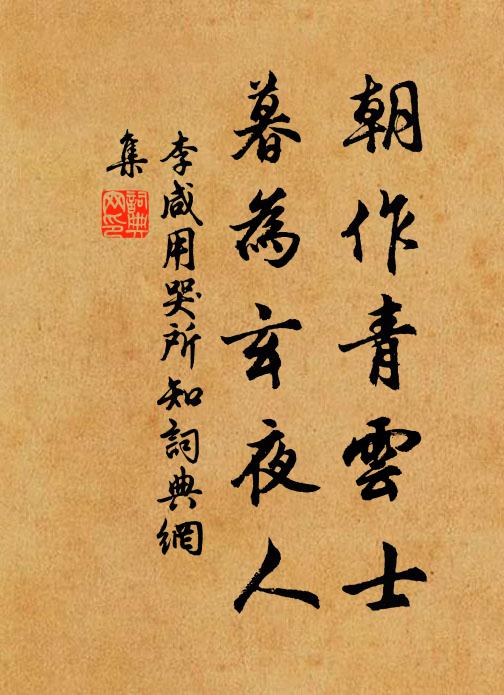 朝作青雲士
暮為玄夜人
李咸用哭所知詞典網
集
詞典
网印